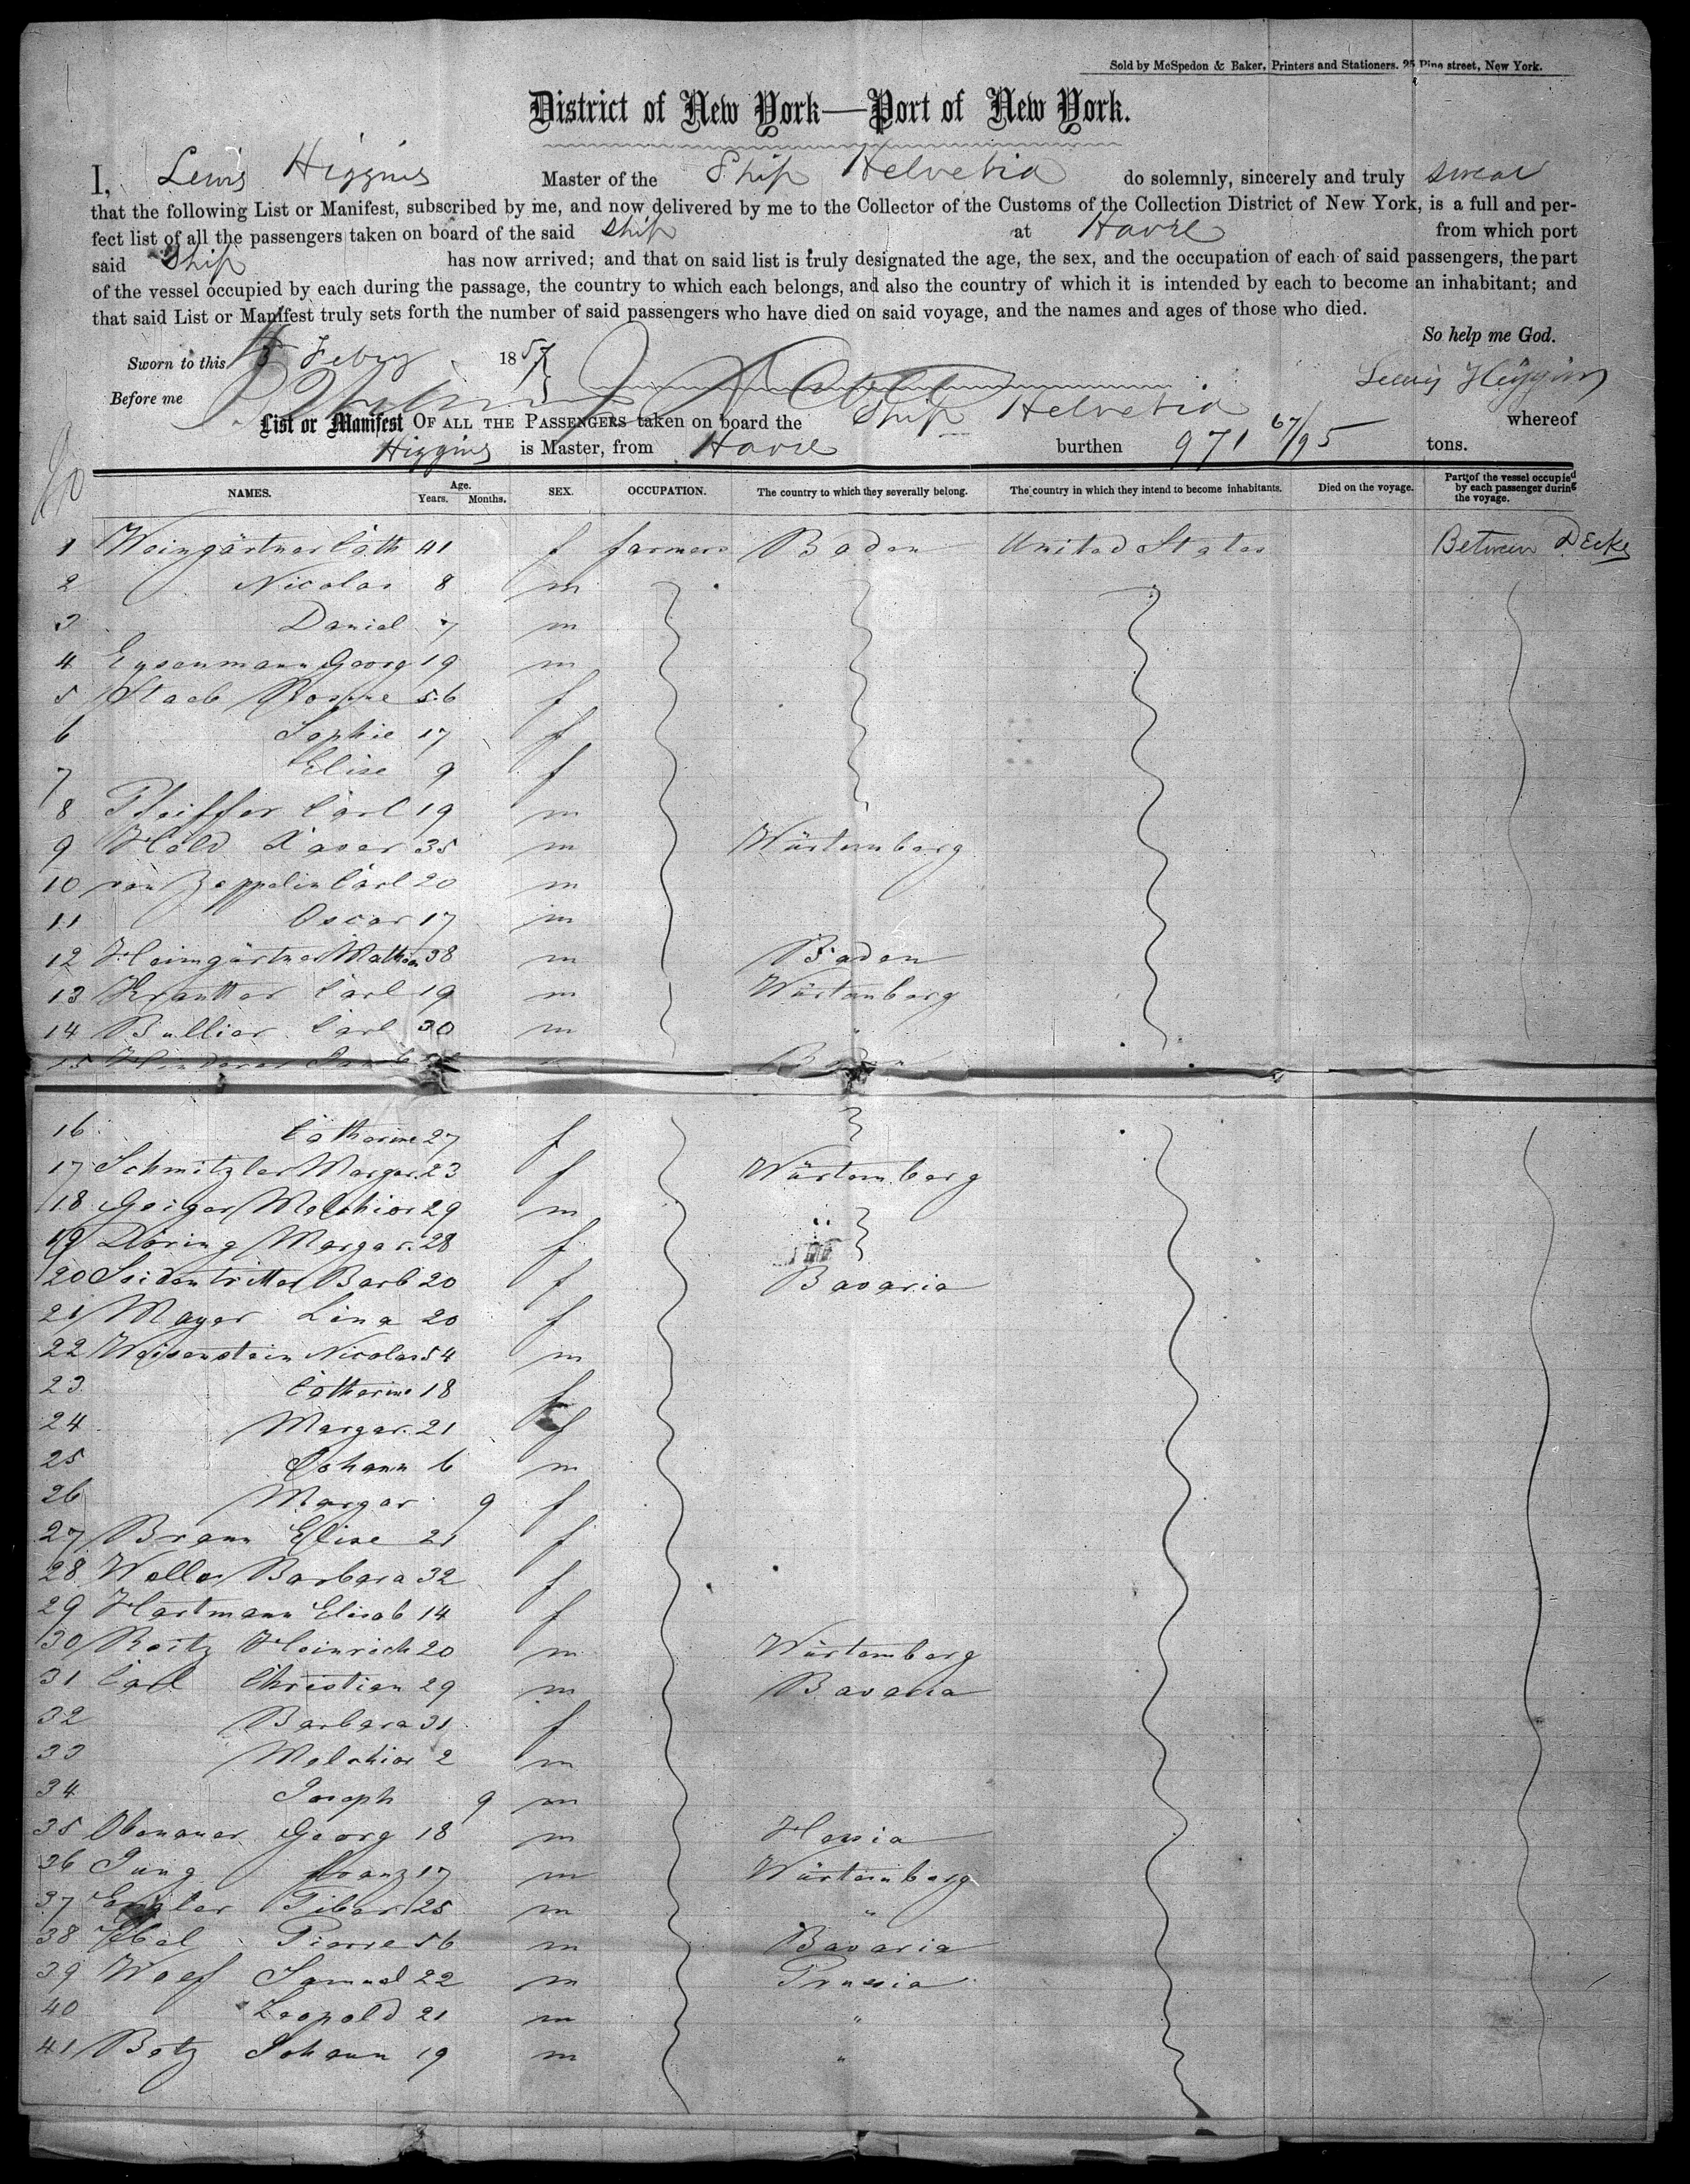 Sold by McSpedon & Baker, Printers and Stationers. 25 Pine street, New York.
District of New York—Port of New York.
I, Lewis Higgins Master of the Ship Helvetia do solemnly, sincerely and truly swear
that the following List or Manifest, subscribed by me, and now delivered by me to the Collector of the Customs of the Collection District of New York, is a full and per-
fect list of all the passengers taken on board of the said Ship at Havre from which port
said Ship has now arrived; and that on said list is truly designated the age, the sex, and the occupation of each of said passengers, the part
of the vessel occupied by each during the passage, the country to which each belongs, and also the country of which it is intended by each to become an inhabitant; and
that said List or Manifest truly sets forth the number of said passengers who have died on said voyage, and the names and ages of those who died.
So help me God.
Sworn to this Febry 1857
Lewis Higgins
Before me
List or Manifest OF ALL THE PASSENGERS taken on board the Ship Helvetia whereof
Higgins is Master, from Havre burthen 971 67/95 tons.
NAMES. Age. Years. Months. SEX. OCCUPATION. The country to which they severally belong. The country in which they intend to become inhabitants. Died on the voyage. Part of the vessel occupied by each passenger during the voyage.
1 Weingärtner Cath 41 f farmers Baden United States Between Decks
2 Nicolas 8 m
3 Daniel 7 m
4 Eysenmann Georg 19 m
5 Staeb Rosine 56 f
6 Sophie 17 f
7 Elise 9 f
8 Pfeiffer Carl 19 m
9 Held Xaver 35 m Würtemberg
10 von Zeppelin Carl 20 m
11 Oscar 17 m
12 Heimgärtner Mathias 38 m Baden
13 Krautter Carl 19 m Würtemberg
14 Bullier Carl 30 m "
15
16 Catharine 27 f
17 Schmitzler Margar. 23 f Würtemberg
18 Geiger Melchior 29 m
19 Döring Margar. 28 f
20 Seidentritter Barb 20 f Bavaria
21 Mayer Lena 20 f
22 Weisenstein Nicolas 54 m
23 Catharine 18 f
24 Margar. 21 f
25 Johann 6 m
26 Margar 9 f
27 Braun Elise 21 f
28 Weller Barbara 32 f
29 Hartmann Elisab 14 f
30 Reitz Heinrich 20 m Würtemberg
31 Carl Christian 29 m Bavaria
32 Barbara 31 f
33 Melchior 2 m
34 Joseph 9 m
35 Obenauer Georg 18 m Hessia
36 Jung Franz 17 m Würtemberg
37 Tiber 25 m "
38 Pierre 56 m Bavaria
39 Woef Samuel 22 m Prussia
40 Leopold 21 m "
41 Botz Johann 19 m "